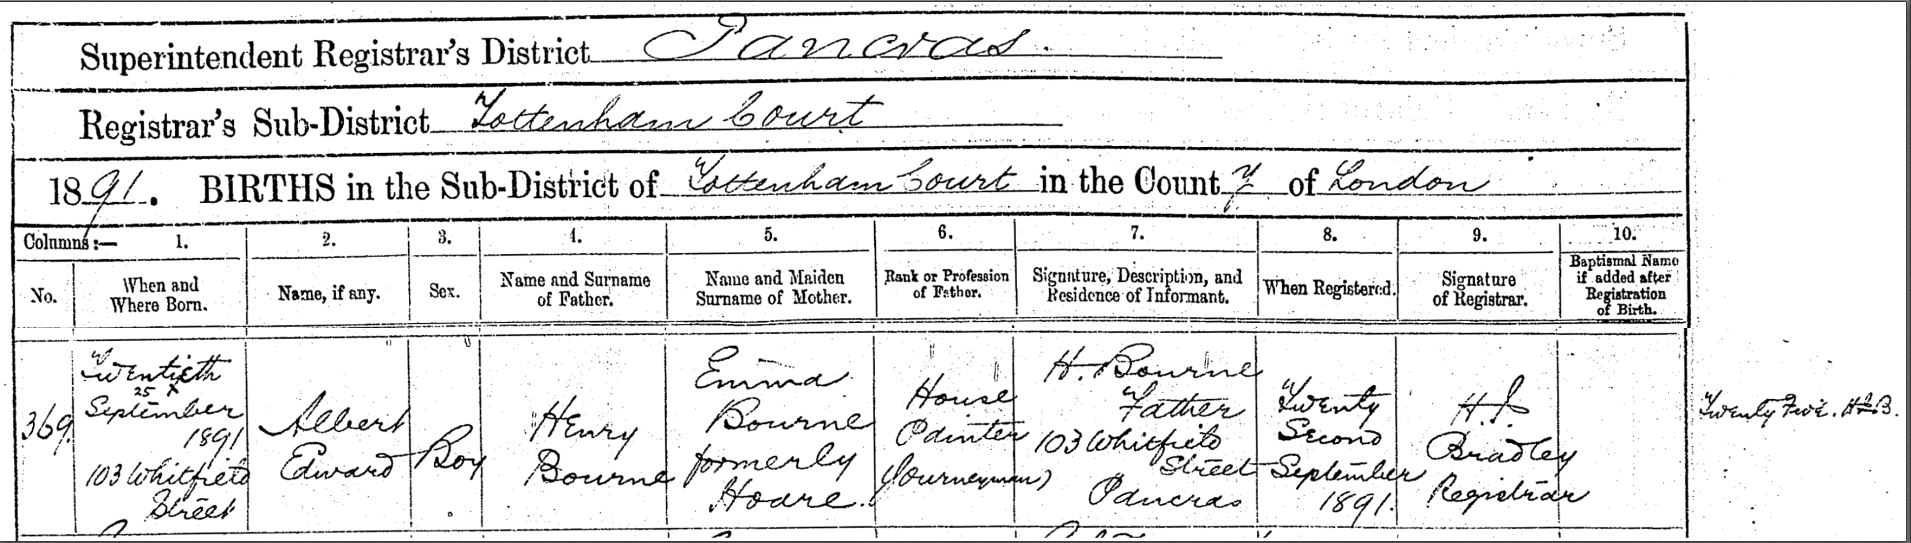 Superintendent Registrar's District Pancras.
Registrar's Sub-District Tottenham Court
1891. BIRTHS in the Sub-District of Tottenham Court in the County of London
Columns:— 1. 2. 3. 4. 5. 6. 7. 8. 9. 10.
No.
When and
Where Born.
Name, if any.
Sex.
Name and Surname
of Father.
Name and Maiden
Surname of Mother.
Rank or Profession
of Father.
Signature, Description, and
Residence of Informant.
When Registered.
Signature
of Registrar.
Baptismal Name
if added after
Registration
of Birth.
369
Twentieth
25 X
September
1891
103 Whitfield
Street
Albert
Edward
Boy
Henry
Bourne
Emma
Bourne
formerly
Hoare.
House
Painter
(Journeyman)
H. Bourne
Father
103 Whitfield
Street
Pancras
Twenty
Second
September
1891.
Bradley
Registrar
Twenty Five.